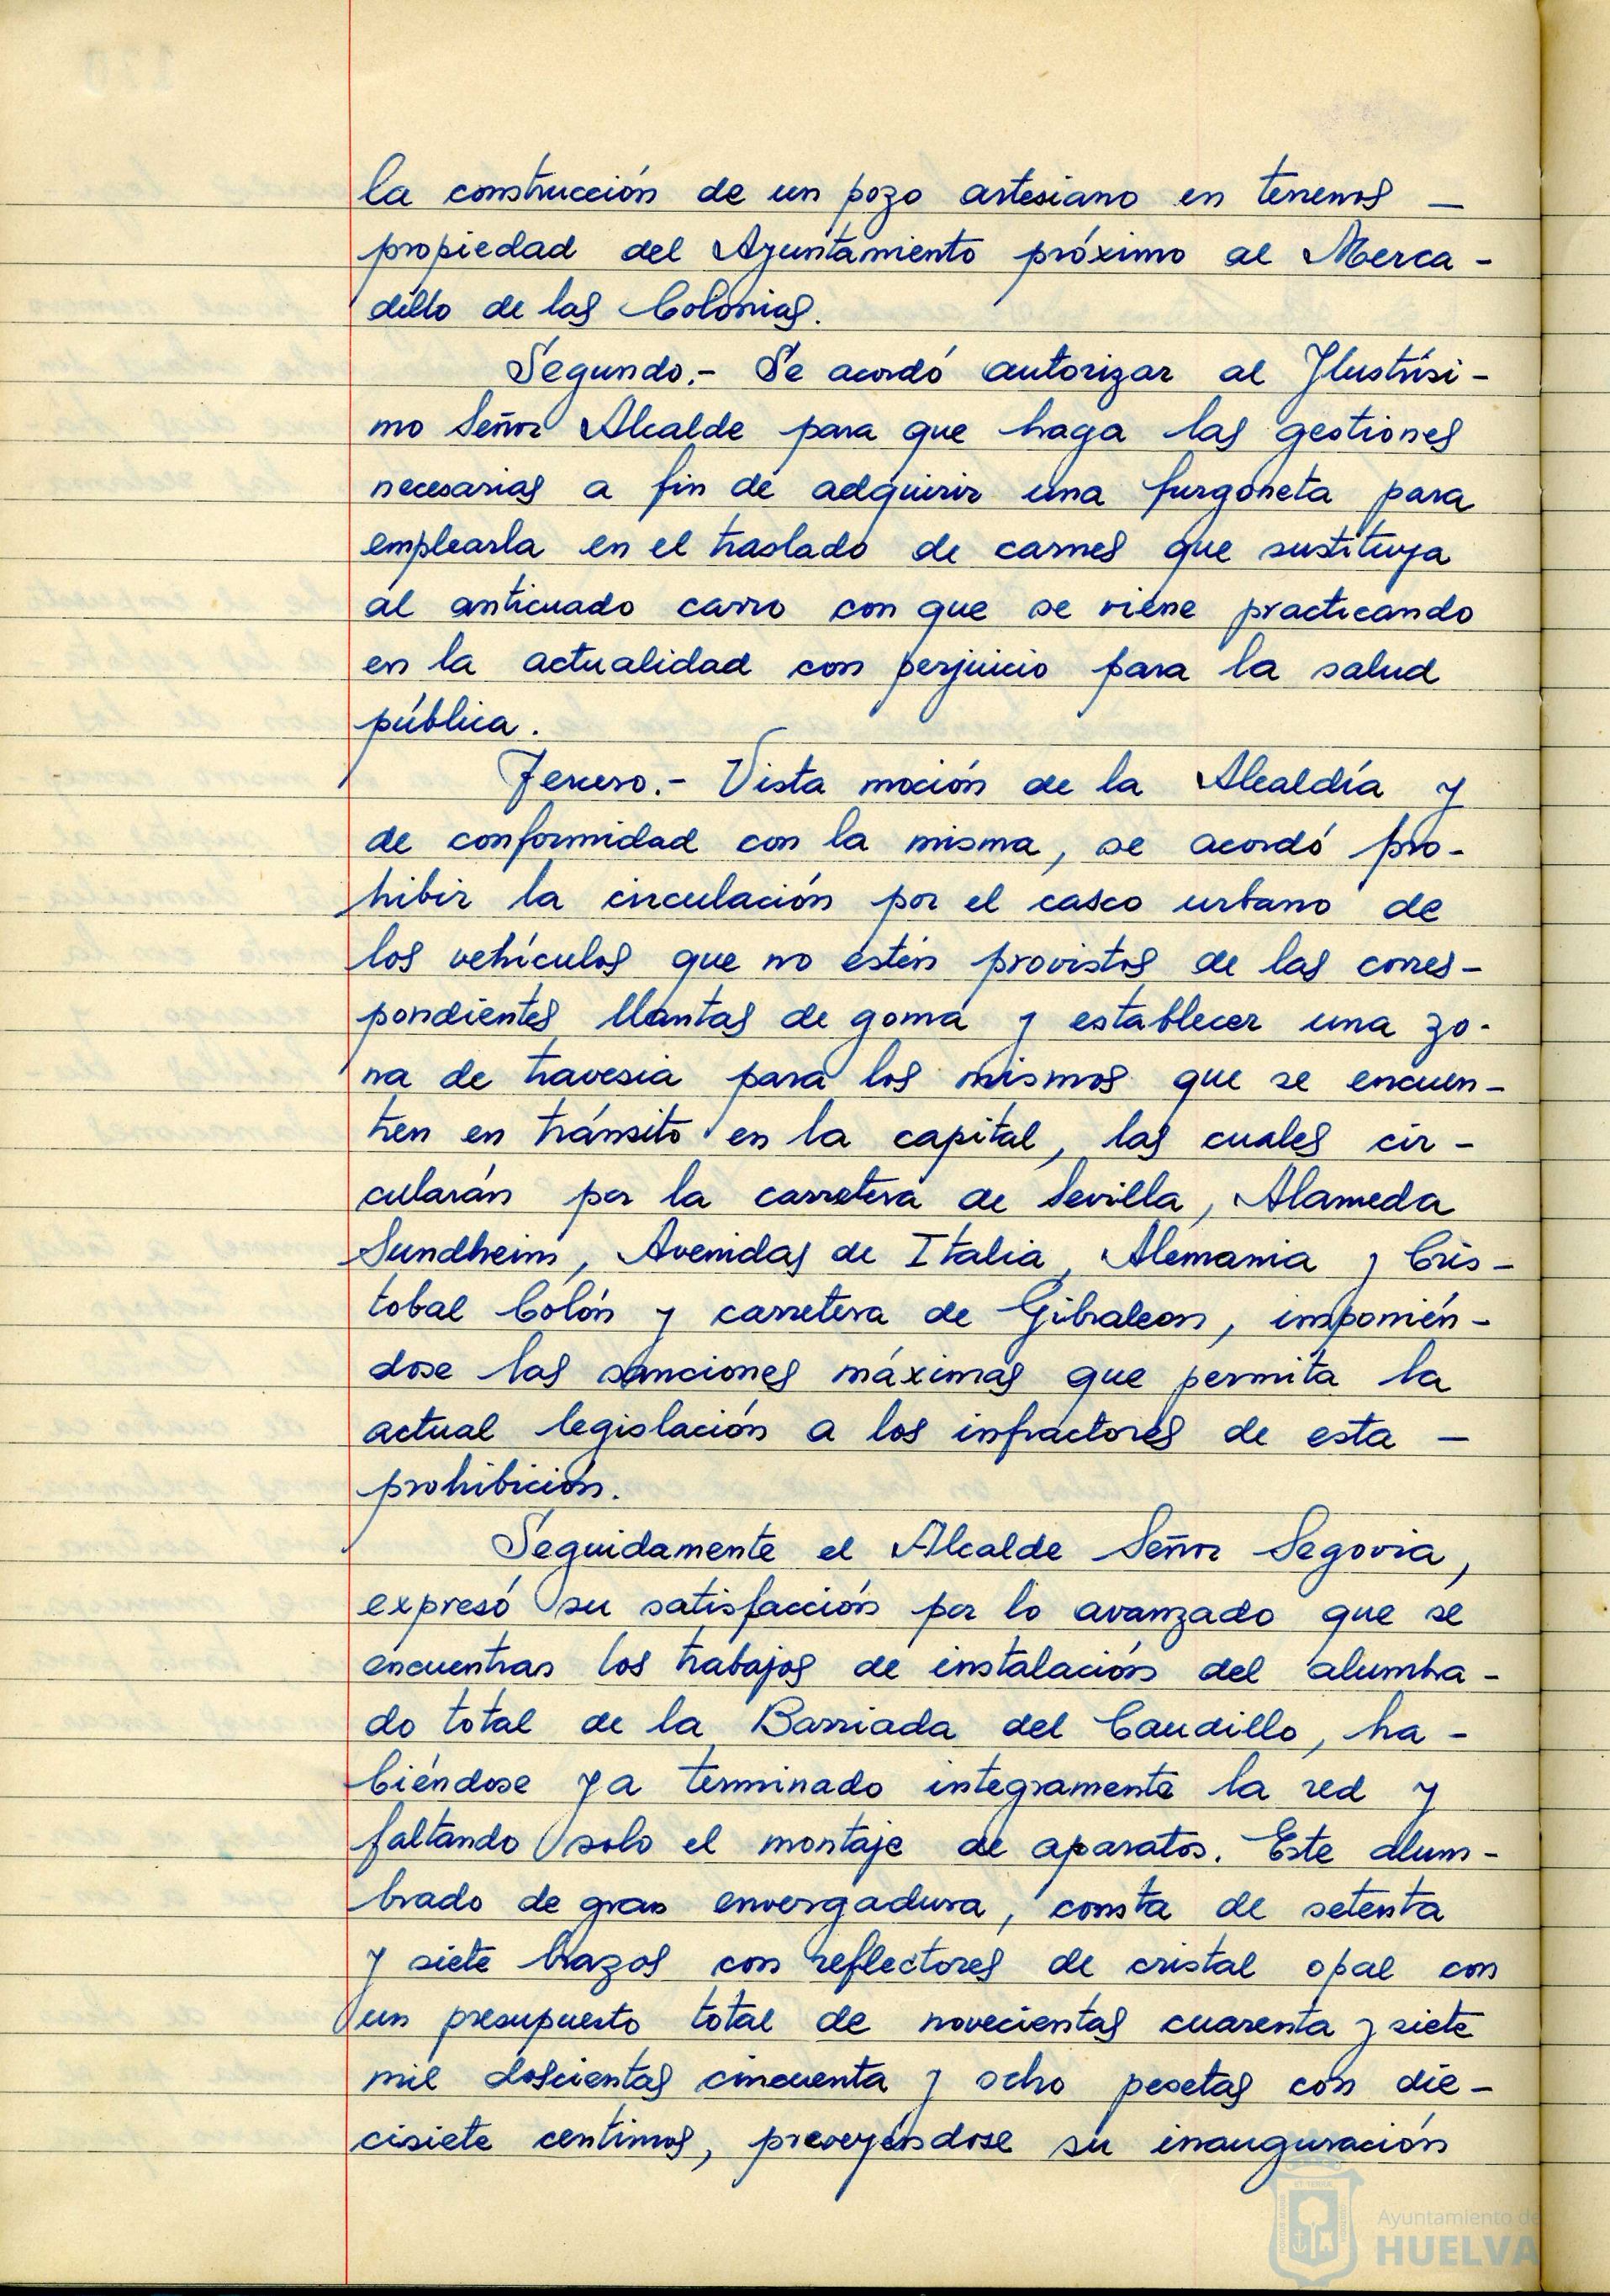 la construcción de un pozo artesiano en terrenos —
propiedad del Ayuntamiento próximo al Merca-
dillo de las Colonias.
Segundo.- Se acordó autorizar al Ilustrísi-
mo Señor Alcalde para que haga las gestiones
necesarias a fin de adquirir una furgoneta para
emplearla en el traslado de carnes que sustituya
al anticuado carro con que se viene practicando
en la actualidad con perjuicio para la salud
pública.
Tercero.- Vista moción de la Alcaldía y
de conformidad con la misma, se acordó pro-
hibir la circulación por el casco urbano de
los vehículos que no estén provistos de las corres-
pondientes llantas de goma y establecer una zo-
na de travesia para los mismos que se encuen-
tren en tránsito en la capital, las cuales cir-
cularán por la carretera de Sevilla, Alameda
Sundheim, Avenidas de Italia, Alemania y Cris-
tobal Colón y carretera de Gibraleon, imponién-
dose las sanciones máximas que permita la
actual legislación a los infractores de esta —
prohibición.
Seguidamente el Alcalde Señor Segovia,
expresó su satisfacción por lo avanzado que se
encuentran los trabajos de instalación del alumbra-
do total de la Barriada del Caudillo, ha-
biéndose ya terminado integramente la red y
faltando solo el montaje de aparatos. Este alum-
brado de gran envergadura, consta de setenta
y siete brazos con reflectores de cristal opal con
un presupuesto total de novecientas cuarenta y siete
mil doscientas cincuenta y ocho pesetas con die-
cisiete centimos, preveyéndose su inauguración
Ayuntamiento de
HUELVA